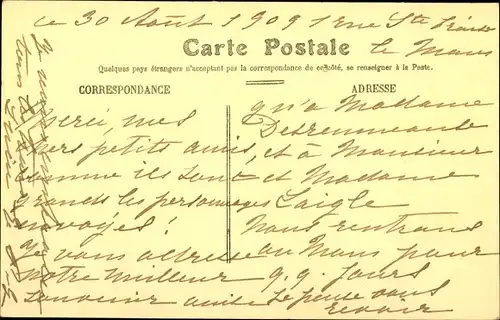 ce 30 Août 1909 1 Rue Ste
le Mans
Carte Postale
Quelques pays étrangers n'acceptant pas la correspondance de ce côté, se renseigner à la Poste.
CORRESPONDANCE
Merci, mes
chers petits amis,
comme ils sont
grands les personnages
envoyés!
Je vous adresse
notre meilleur
souvenir ainsi
ADRESSE
qu'à Madame
et à Monsieur
et Madame
Laigle
Nous rentrons
au Mans pour
q.q. jours
Je pense vous
revoir